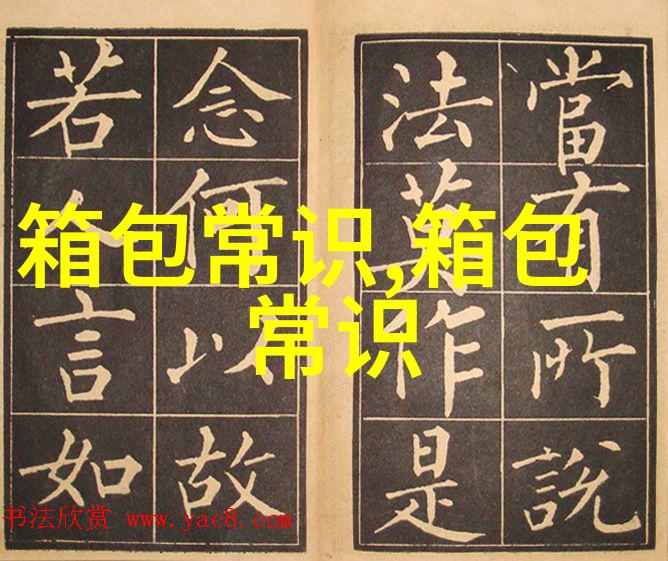 箱包常识,箱包
常识
當有所說
法莫作是
念何以故
若人言如
书法欣赏 www.yac8.com